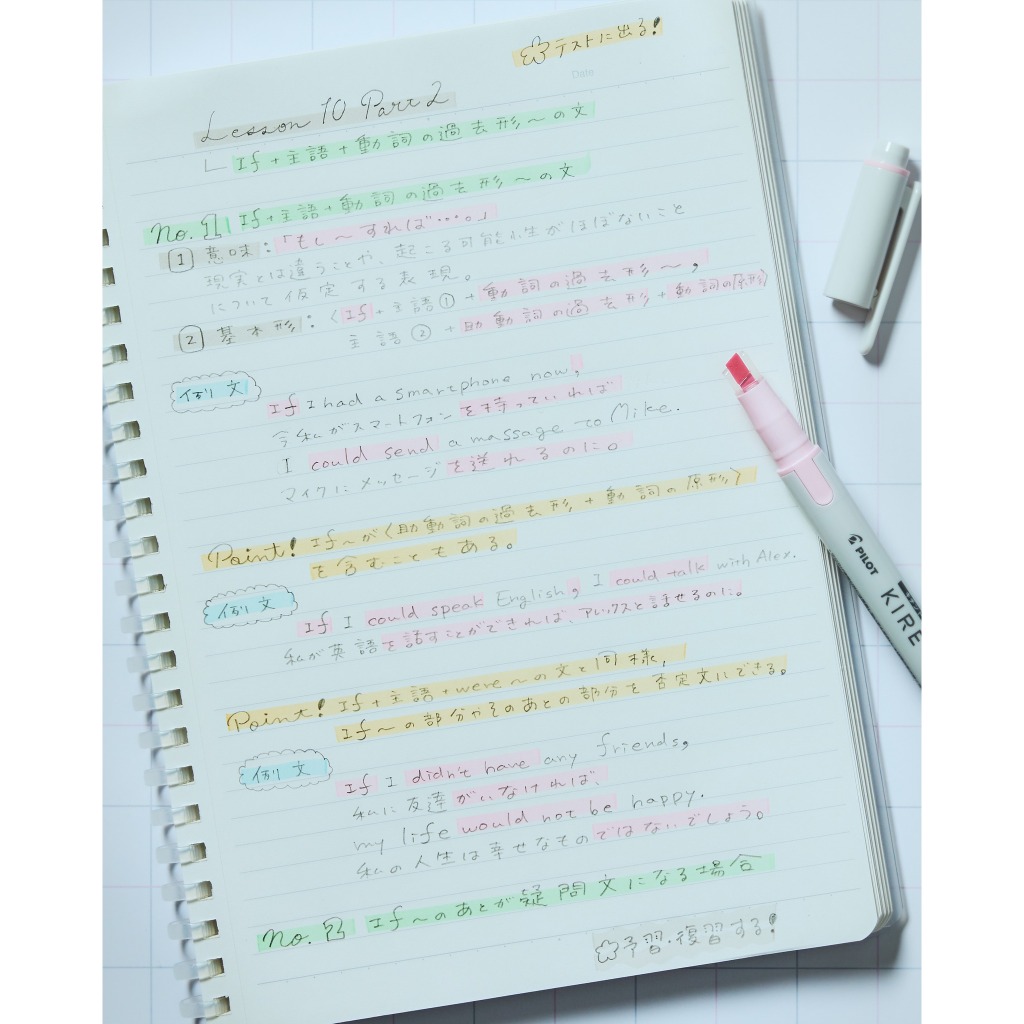 テストに出る!
Date
Lesson 10 Part 2
If+主語+動詞の過去形~の文
No. 1 If+主語+動詞の過去形~の文
1 意味:「もし~すれば…。」
現実とは違うことや、起こる可能性がほぼないこと
について仮定する表現。
2 基本形:〈If+主語①+動詞の過去形~,
主語②+助動詞の過去形+動詞の原形〉
例文
If I had a smartphone now,
今私がスマートフォンを持っていれば
I could send a massage to Mike.
マイクにメッセージを送れるのに。
Point! If~が〈助動詞の過去形+動詞の原形〉
を含むこともある。
例文
If I could speak English, I could talk with Alex.
私が英語を話すことができれば、アレックスと話せるのに。
Point! If+主語+were~の文と同様,
If~の部分やそのあとの部分を否定文にできる。
例文
If I didn't have any friends,
私に友達がいなければ、
my life would not be happy.
私の人生は幸せなものではないでしょう。
No. 2 If~のあとが疑問文になる場合
予習・復習する!
PILOT
KIRE